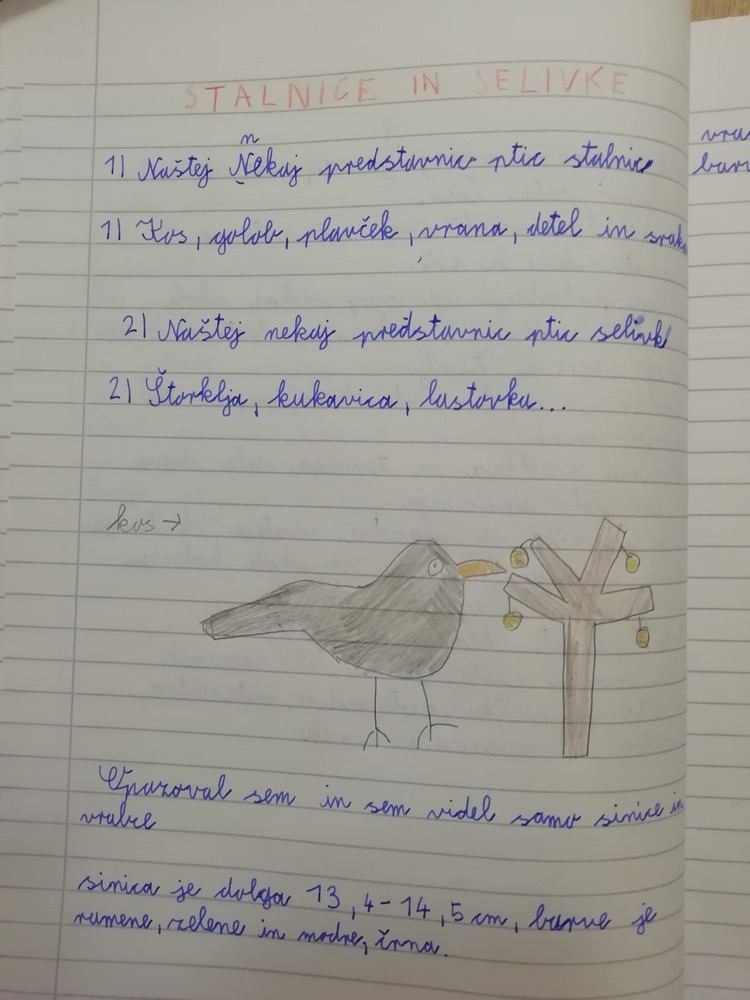 STALNICE IN SELIVKE
n
1) Naštej Nekaj predstavnic ptic stalnic
1) Kos, golob, plavček, vrana, detel in srak
2) Naštej nekaj predstavnic ptic selivk
2) Štorklja, kukavica, lastovka...
kos →
Opazoval sem in sem videl samo sinice in
vrabce
sinica je dolga 13,4-14,5 cm, barve je
rumene, zelene in modre, črna.